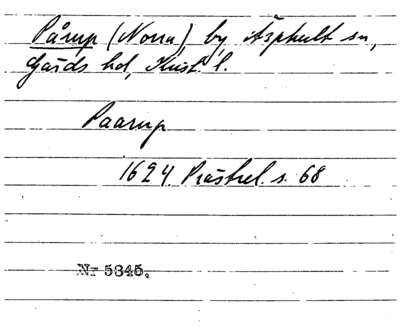 Pårup (Norra) by, Äsphult sn,
Gärds hd, Krist. l.
Paarup
1624 Prästrel. s. 68
Nr 5345.